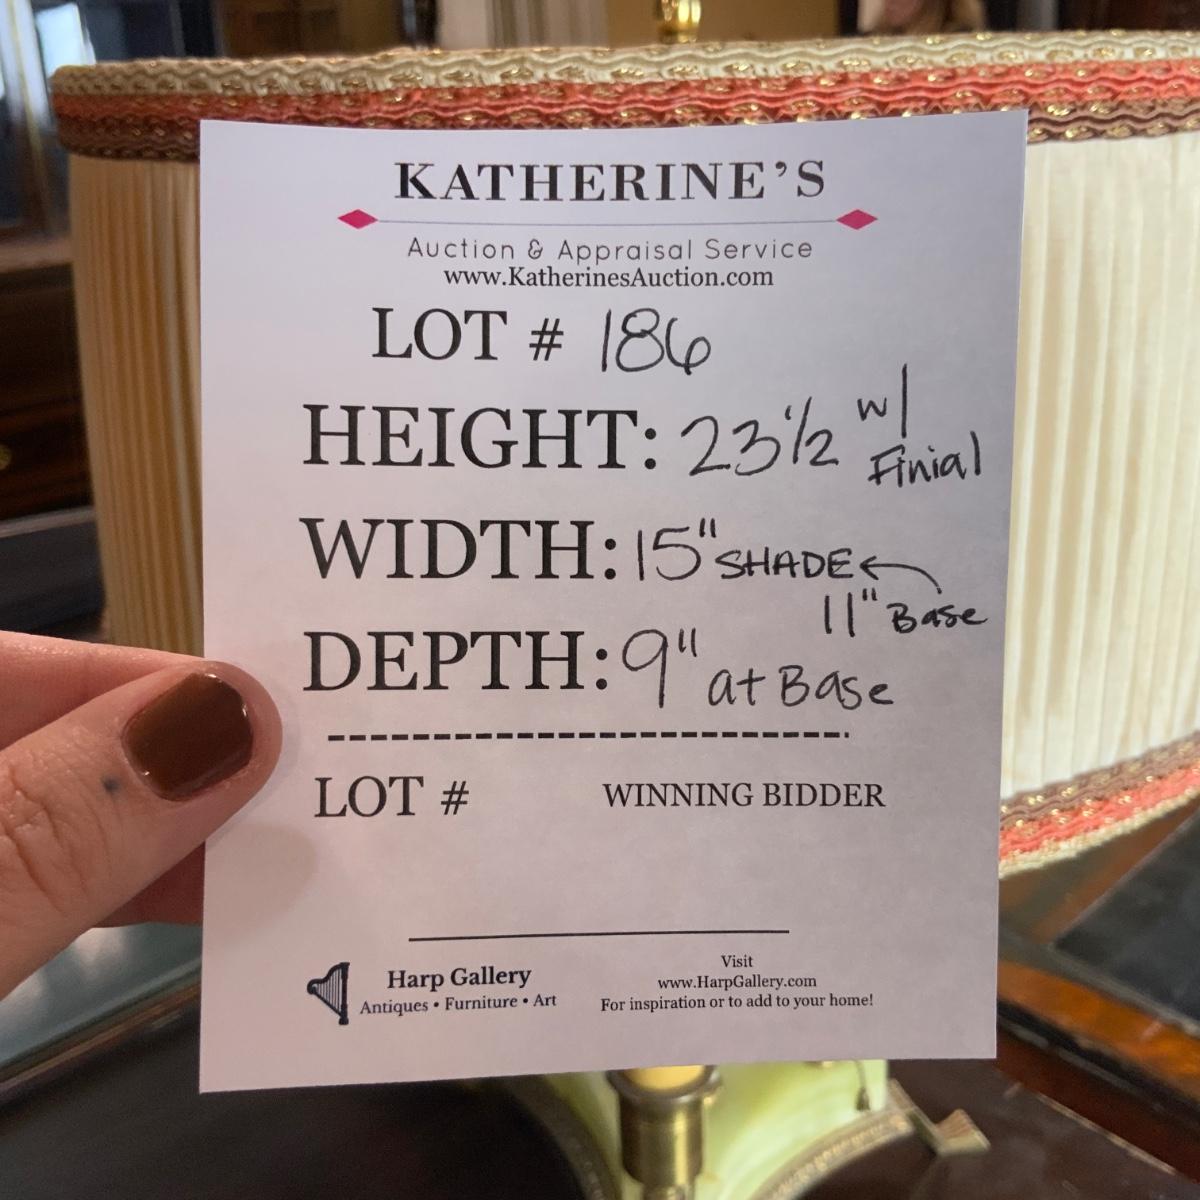 KATHERINE'S
Auction & Appraisal Service
www.KatherinesAuction.com
LOT # 186
HEIGHT: 23 1/2 w/ Finial
WIDTH: 15" SHADE
11" Base
DEPTH: 9" at Base
LOT # WINNING BIDDER
Harp Gallery
Antiques • Furniture • Art
Visit
www.HarpGallery.com
For inspiration or to add to your home!